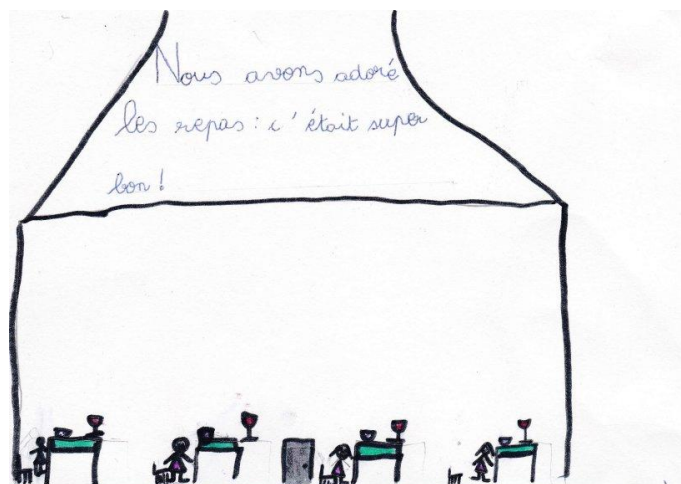 Nous avons adoré
les repas : c'était super
bon !